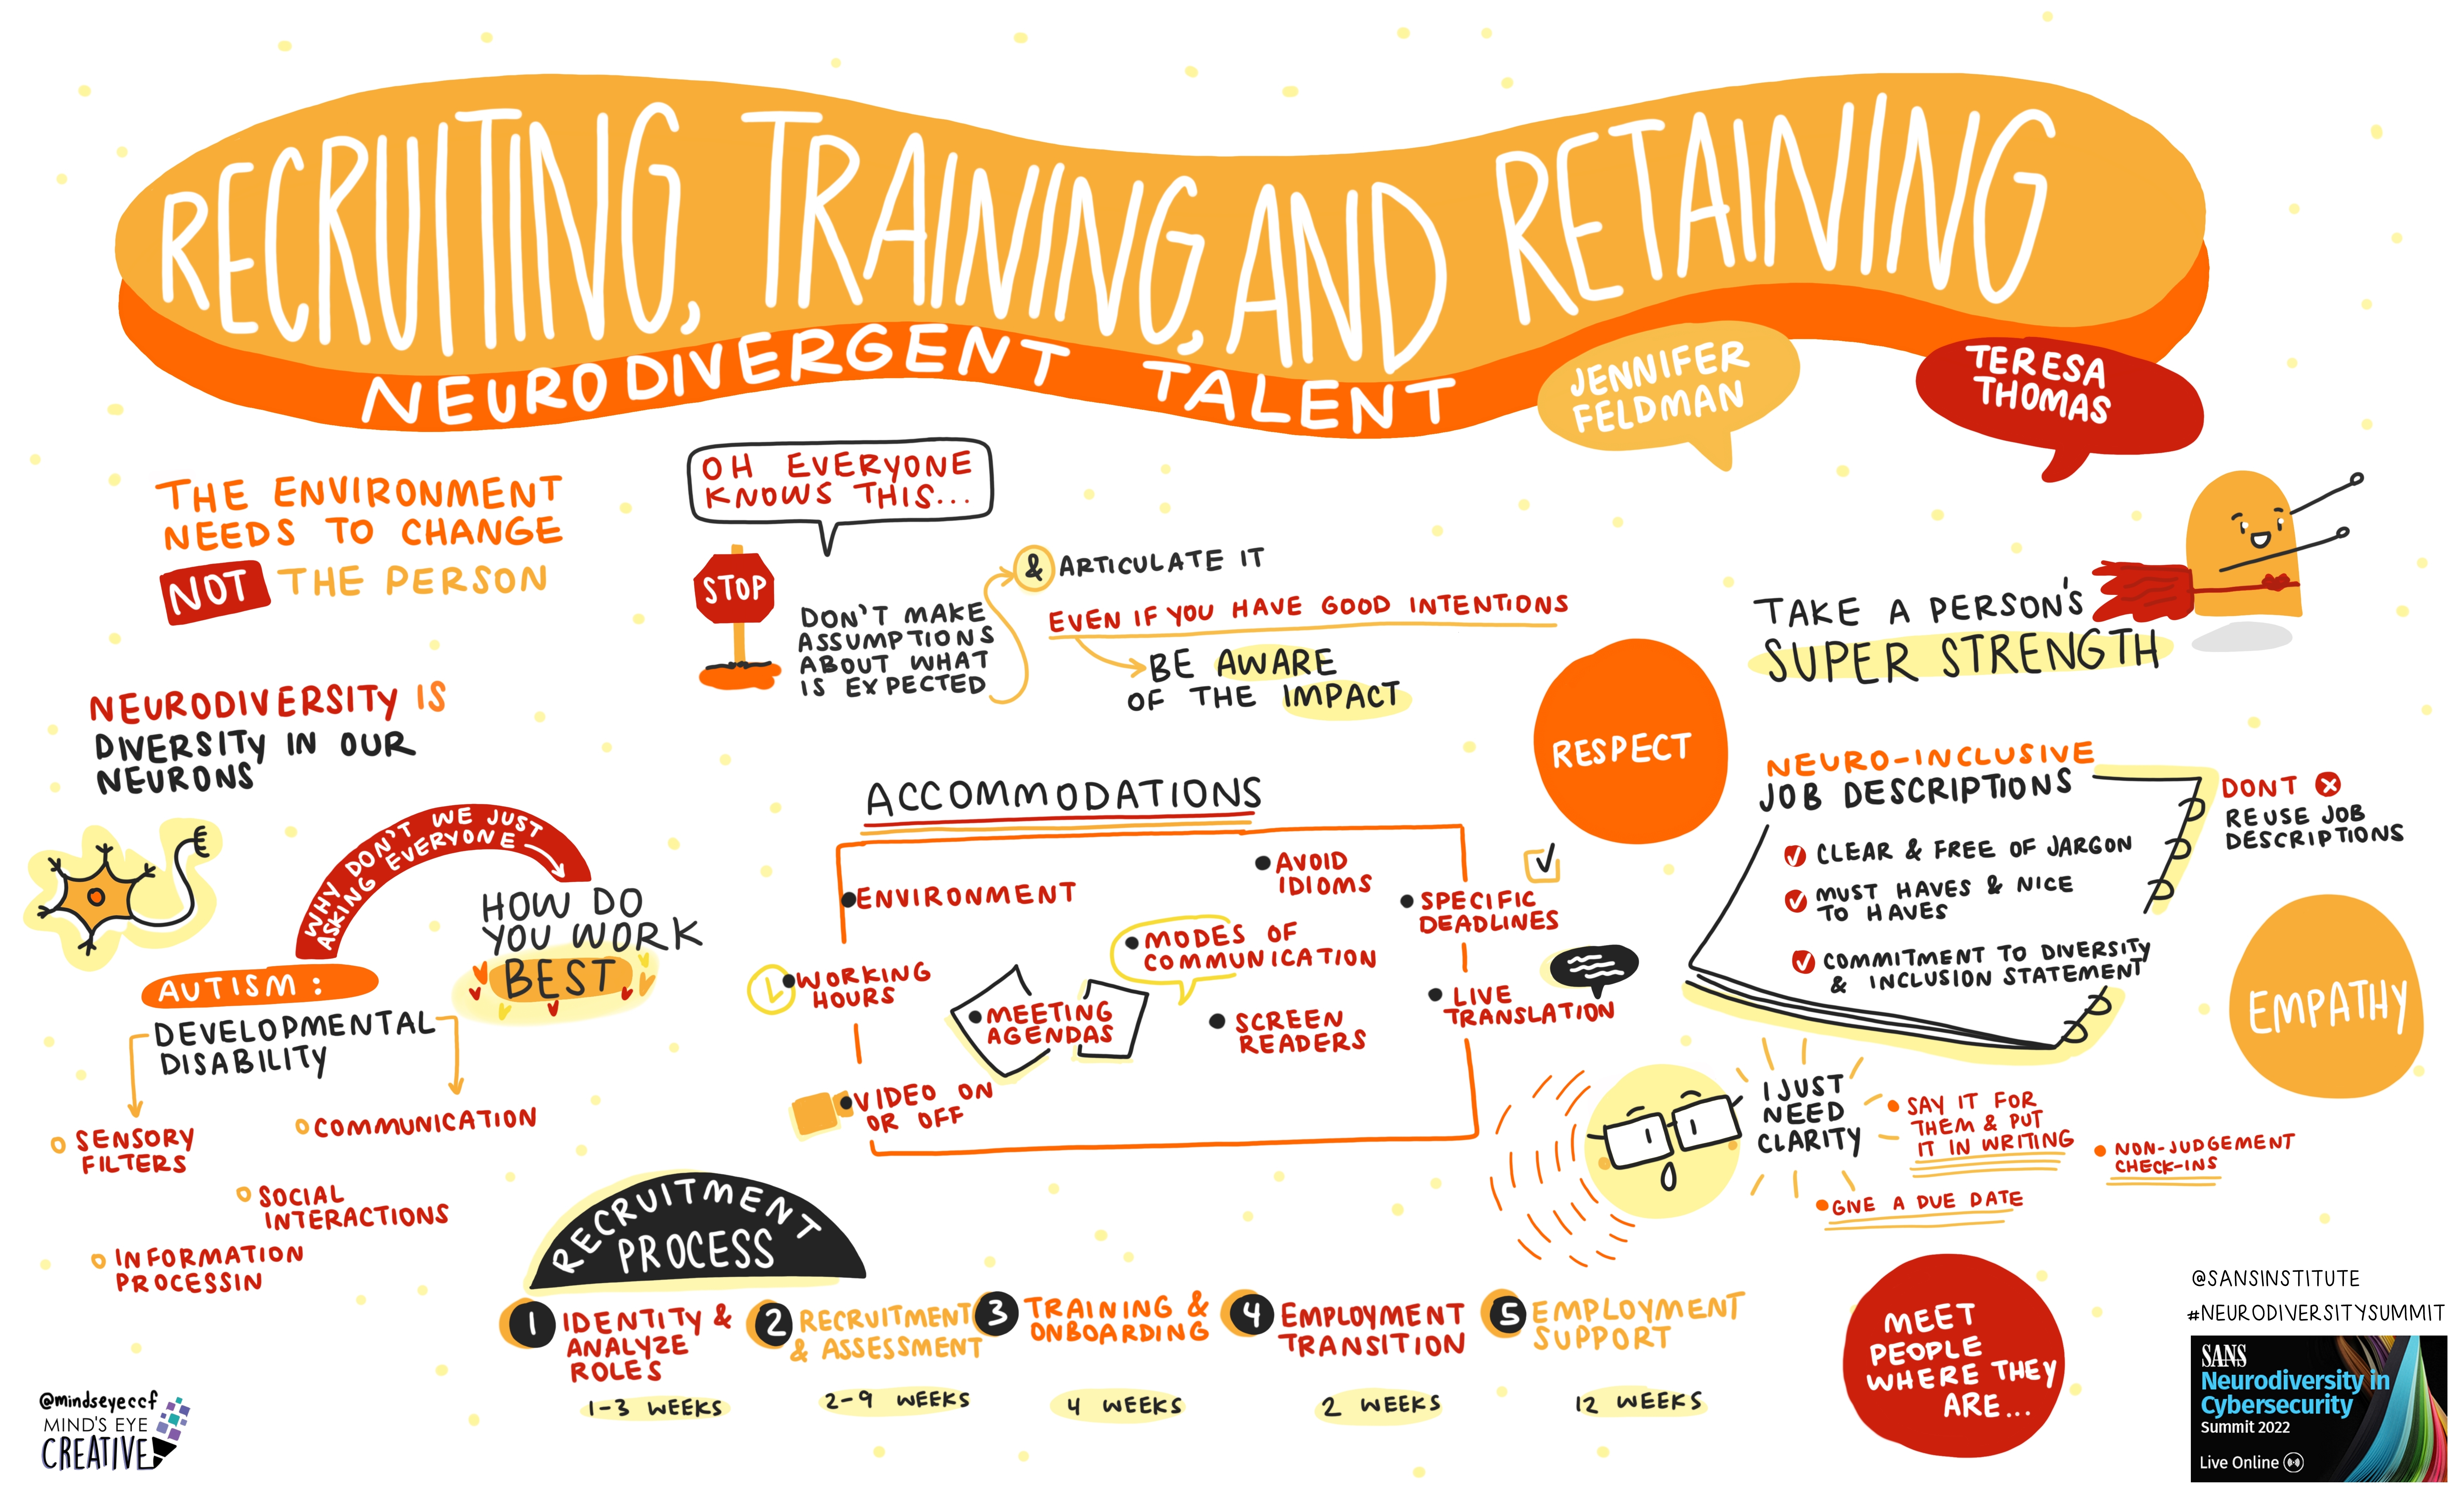 RECRUITING, TRAINING, AND RETAINING
NEURODIVERGENT TALENT
JENNIFER
FELDMAN
TERESA
THOMAS
THE ENVIRONMENT
NEEDS TO CHANGE
NOT THE PERSON
OH EVERYONE
KNOWS THIS...
STOP
DON'T MAKE
ASSUMPTIONS
ABOUT WHAT
IS EXPECTED
& ARTICULATE IT
EVEN IF YOU HAVE GOOD INTENTIONS
BE AWARE
OF THE IMPACT
TAKE A PERSON'S
SUPER STRENGTH
NEURODIVERSITY IS
DIVERSITY IN OUR
NEURONS
WHY DON'T WE JUST
ASKING EVERYONE
HOW DO
YOU WORK
BEST
AUTISM:
DEVELOPMENTAL
DISABILITY
SENSORY
FILTERS
COMMUNICATION
SOCIAL
INTERACTIONS
INFORMATION
PROCESSIN
ACCOMMODATIONS
ENVIRONMENT
AVOID
IDIOMS
SPECIFIC
DEADLINES
MODES OF
COMMUNICATION
WORKING
HOURS
MEETING
AGENDAS
SCREEN
READERS
LIVE
TRANSLATION
VIDEO ON
OR OFF
RESPECT
NEURO-INCLUSIVE
JOB DESCRIPTIONS
CLEAR & FREE OF JARGON
MUST HAVES & NICE
TO HAVES
COMMITMENT TO DIVERSITY
& INCLUSION STATEMENT
DONT
REUSE JOB
DESCRIPTIONS
EMPATHY
I JUST
NEED
CLARITY
SAY IT FOR
THEM & PUT
IT IN WRITING
NON-JUDGEMENT
CHECK-INS
GIVE A DUE DATE
RECRUITMENT
PROCESS
1 IDENTITY &
ANALYZE
ROLES
1-3 WEEKS
2 RECRUITMENT
& ASSESSMENT
2-9 WEEKS
3 TRAINING &
ONBOARDING
4 WEEKS
4 EMPLOYMENT
TRANSITION
2 WEEKS
5 EMPLOYMENT
SUPPORT
12 WEEKS
MEET
PEOPLE
WHERE THEY
ARE...
@SANSINSTITUTE
#NEURODIVERSITYSUMMIT
SANS
Neurodiversity in
Cybersecurity
Summit 2022
Live Online
@mindseyeccf
MIND'S EYE
CREATIVE